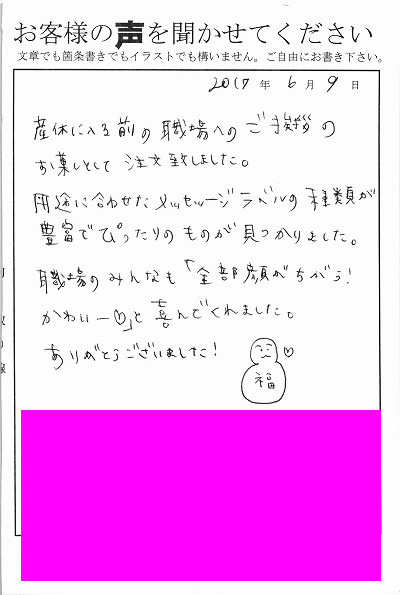 お客様の声を聞かせてください
文章でも箇条書きでもイラストでも構いません。ご自由にお書き下さい。
2017 年 6 月 9 日
産休に入る前の職場へのご挨拶の
お菓子として注文致しました。
用途に合わせたメッセージラベルの種類が
豊富でぴったりのものが見つかりました。
職場のみんなも「全部顔がちがう!
かわいー♡」と喜んでくれました。
ありがとうございました!
♡
福